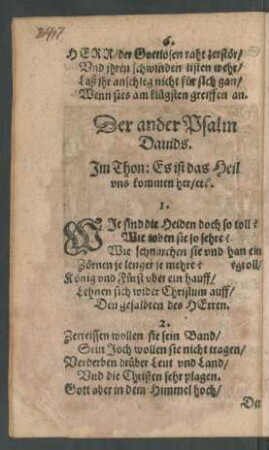 6.
HERR/der Gottlosen raht zerstör/
Vnd jhren schwinden listen wehr/
Laß jhr anschleg nicht für sich gan/
Wenn sies am klügsten greiffen an.
Der ander Psalm
Dauids.
Im Thon: Es ist das Heil
vns kommen her/etc.
1.
WIe sind die Heiden doch so toll?
Wie toben sie so sehre?
Wie schnarchen sie vnd han ein
Zörnen je lenger je mehre? groll/
König vnd Fürst vber ein hauff/
Lehnen sich wider Christum auff/
Den gesalbten des HErren.
2.
Zerreissen wollen sie sein Band/
Sein Joch wollen sie nicht tragen/
Verderben drüber Leut vnd Land/
Vnd die Christen sehr plagen.
Gott aber in dem Himmel hoch/